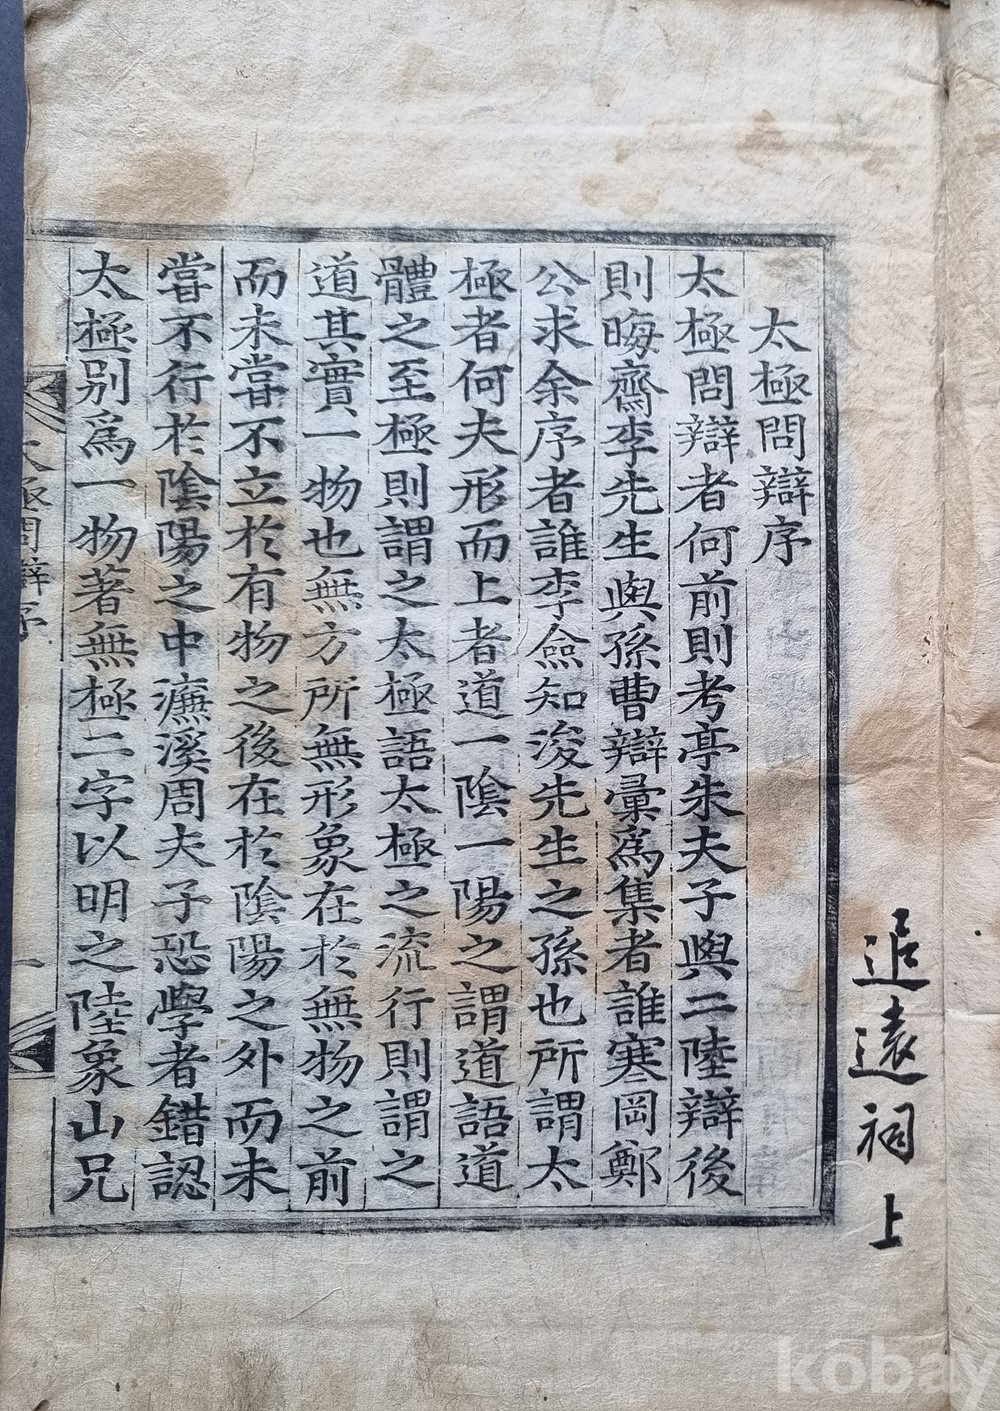 追遠祠上
太極問辯序
太極問辯者何前則考亭朱夫子與二陸辯後
則晦齋李先生與孫曹辯彙爲集者誰寒岡鄭
公求余序者誰李僉知浚先生之孫也所謂太
極者何夫形而上者道一陰一陽之謂道語道
體之至極則謂之太極語太極之流行則謂之
道其實一物也無方所無形象在於無物之前
而未嘗不立於有物之後在於陰陽之外而未
嘗不行於陰陽之中濂溪周夫子恐學者錯認
太極别爲一物著無極二字以明之陸象山兄
太極問辯序 一
kobay